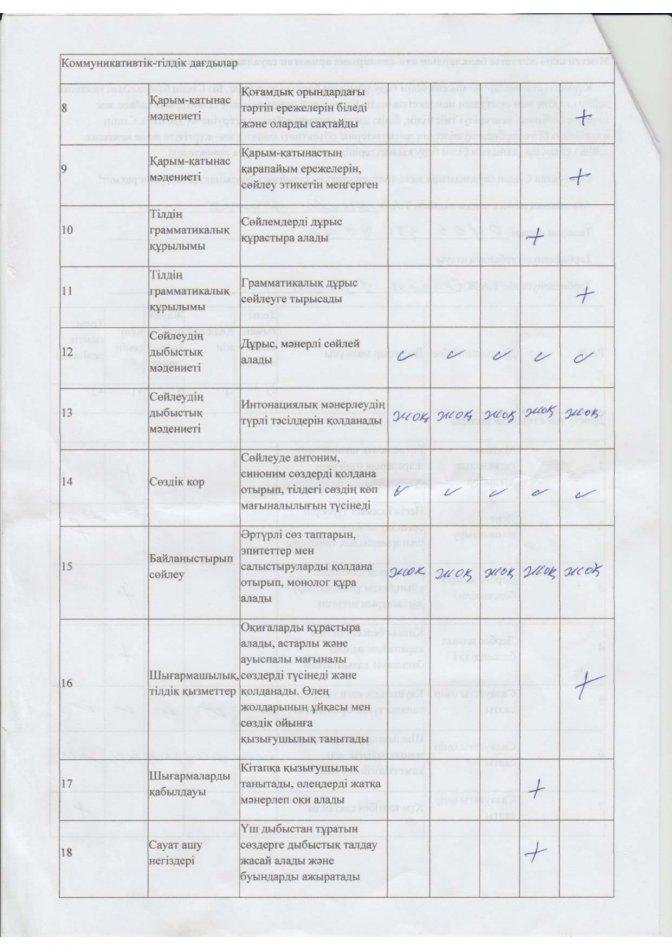 Коммуникативтік-тілдік дағдылар
8
Қарым-қатынас
мәдениеті
Қоғамдық орындардағы
тәртіп ережелерін біледі
және оларды сақтайды
+
9
Қарым-қатынас
мәдениеті
Қарым-қатынастың
қарапайым ережелерін,
сөйлеу этикетін меңгерген
+
10
Тілдің
грамматикалық
құрылымы
Сөйлемдерді дұрыс
құрастыра алады
+
11
Тілдің
грамматикалық
құрылымы
Грамматикалық дұрыс
сөйлеуге тырысады
+
12
Сөйлеудің
дыбыстық
мәдениеті
Дұрыс, мәнерлі сөйлей
алады
✓ ✓ ✓ ✓ ✓
13
Сөйлеудің
дыбыстық
мәдениеті
Интонациялық мәнерлеудің
түрлі тәсілдерін қолданады
жоқ жоқ жоқ жоқ жоқ
14
Сөздік қор
Сөйлеуде антоним,
синоним сөздерді қолдана
отырып, тілдегі сөздің көп
мағыналылығын түсінеді
✓ ✓ ✓ ✓ ✓
15
Байланыстырып
сөйлеу
Әртүрлі сөз таптарын,
эпитеттер мен
салыстыруларды қолдана
отырып, монолог құра
алады
жоқ жоқ жоқ жоқ жоқ
16
Шығармашылық,
тілдік қызметтер
Оқиғаларды құрастыра
алады, астарлы және
ауыспалы мағыналы
сөздерді түсінеді және
қолданады. Өлең
жолдарының ұйқасы мен
сөздік ойынға
қызығушылық танытады
+
17
Шығармаларды
қабылдауы
Кітапқа қызығушылық
танытады, өлеңдерді жатқа
мәнерлеп оқи алады
+
18
Сауат ашу
негіздері
Үш дыбыстан тұратын
сөздерге дыбыстық талдау
жасай алады және
буындарды ажыратады
+